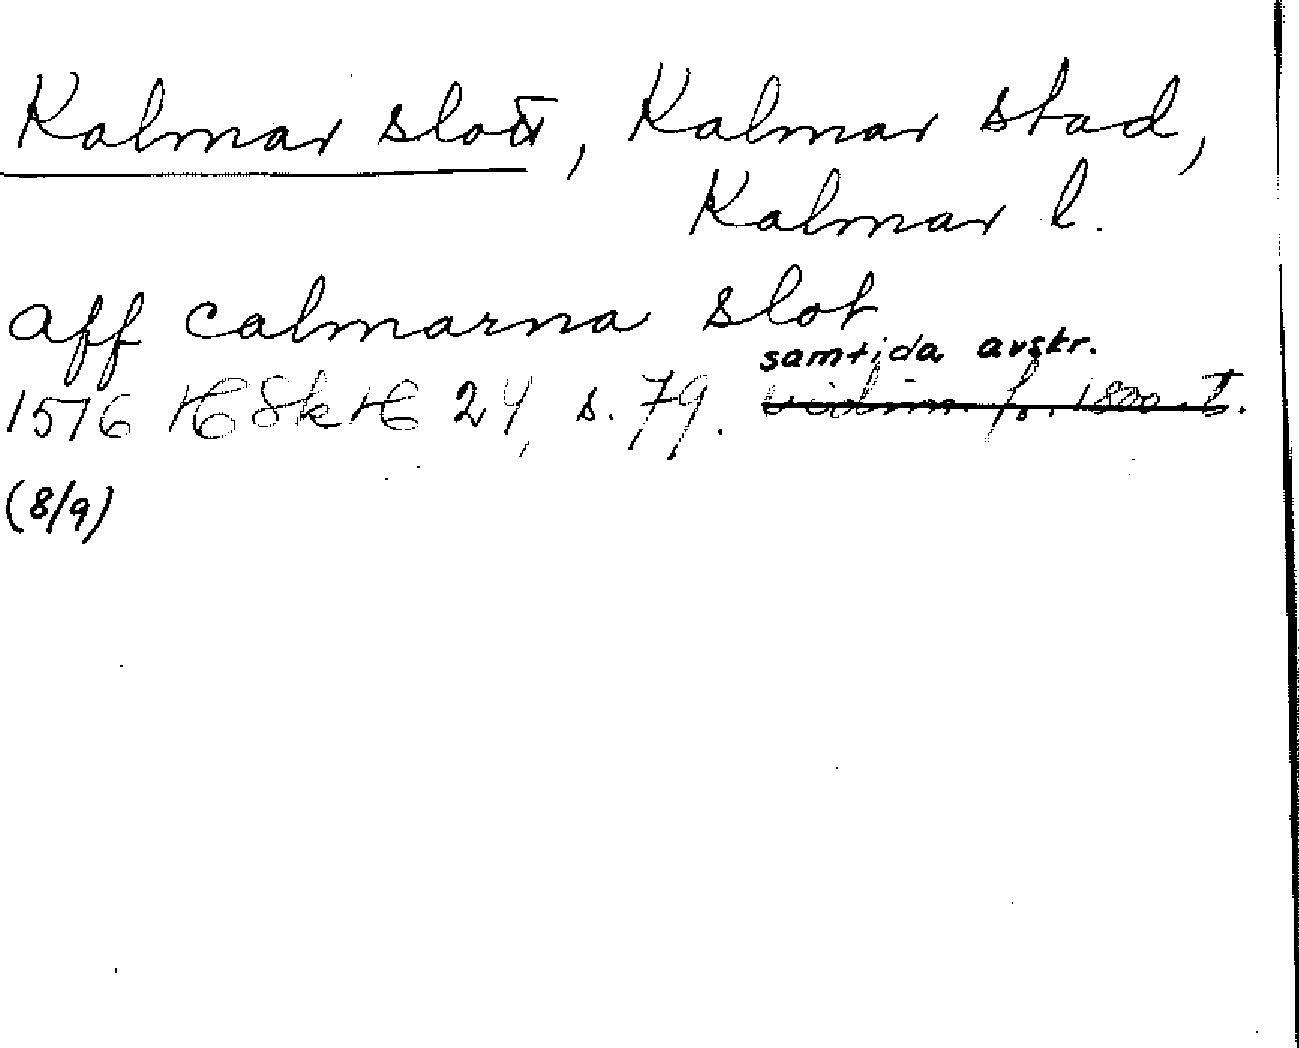 Kalmar slott, Kalmar stad,
Kalmar l.
aff calmarna slot
samtida avskr.
1576 HSkH 24, s. 79. vidim fr. 1800-t.
(8/9)